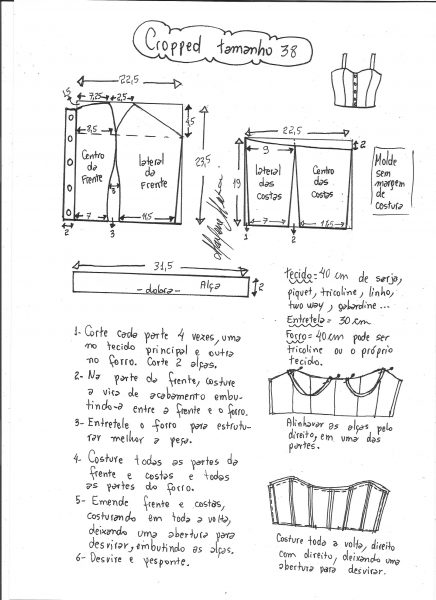 Cropped tamanho 38
22,5
1,5
7,25
2,5
4,5
8,5
23,5
Centro
da
frente
lateral
da
Frente
3
7
11,5
2
3
22,5
9
2
19
lateral
das
costas
Centro
das
costas
7
11,5
1
2
Molde
sem
margem
de
costura
31,5
Alça
- dobra -
2
tecido = 40 cm de sarja,
piquet, tricoline, linho,
two way, gabardine...
Entretela = 30 cm
Forro = 40 cm pode ser
tricoline ou o próprio
tecido.
1- Corte cada parte 4 vezes, uma
no tecido principal e outra
no forro. Corte 2 alças.
2- Na parte da frente, costure
a vira de acabamento embu-
tindo-a entre a frente e o forro.
3- Entretele o forro para estrutu-
rar melhor a peça.
4- Costure todas as partes da
frente e costas e todas
as partes do forro.
5- Emende frente e costas,
costurando em toda a volta,
deixando uma abertura para
desvirar, embutindo as alças.
6- Desvire e pesponte.
Alinhavar as alças pelo
direito, em uma das
partes.
Costure toda a volta, direito
com direito, deixando uma
abertura para desvirar.